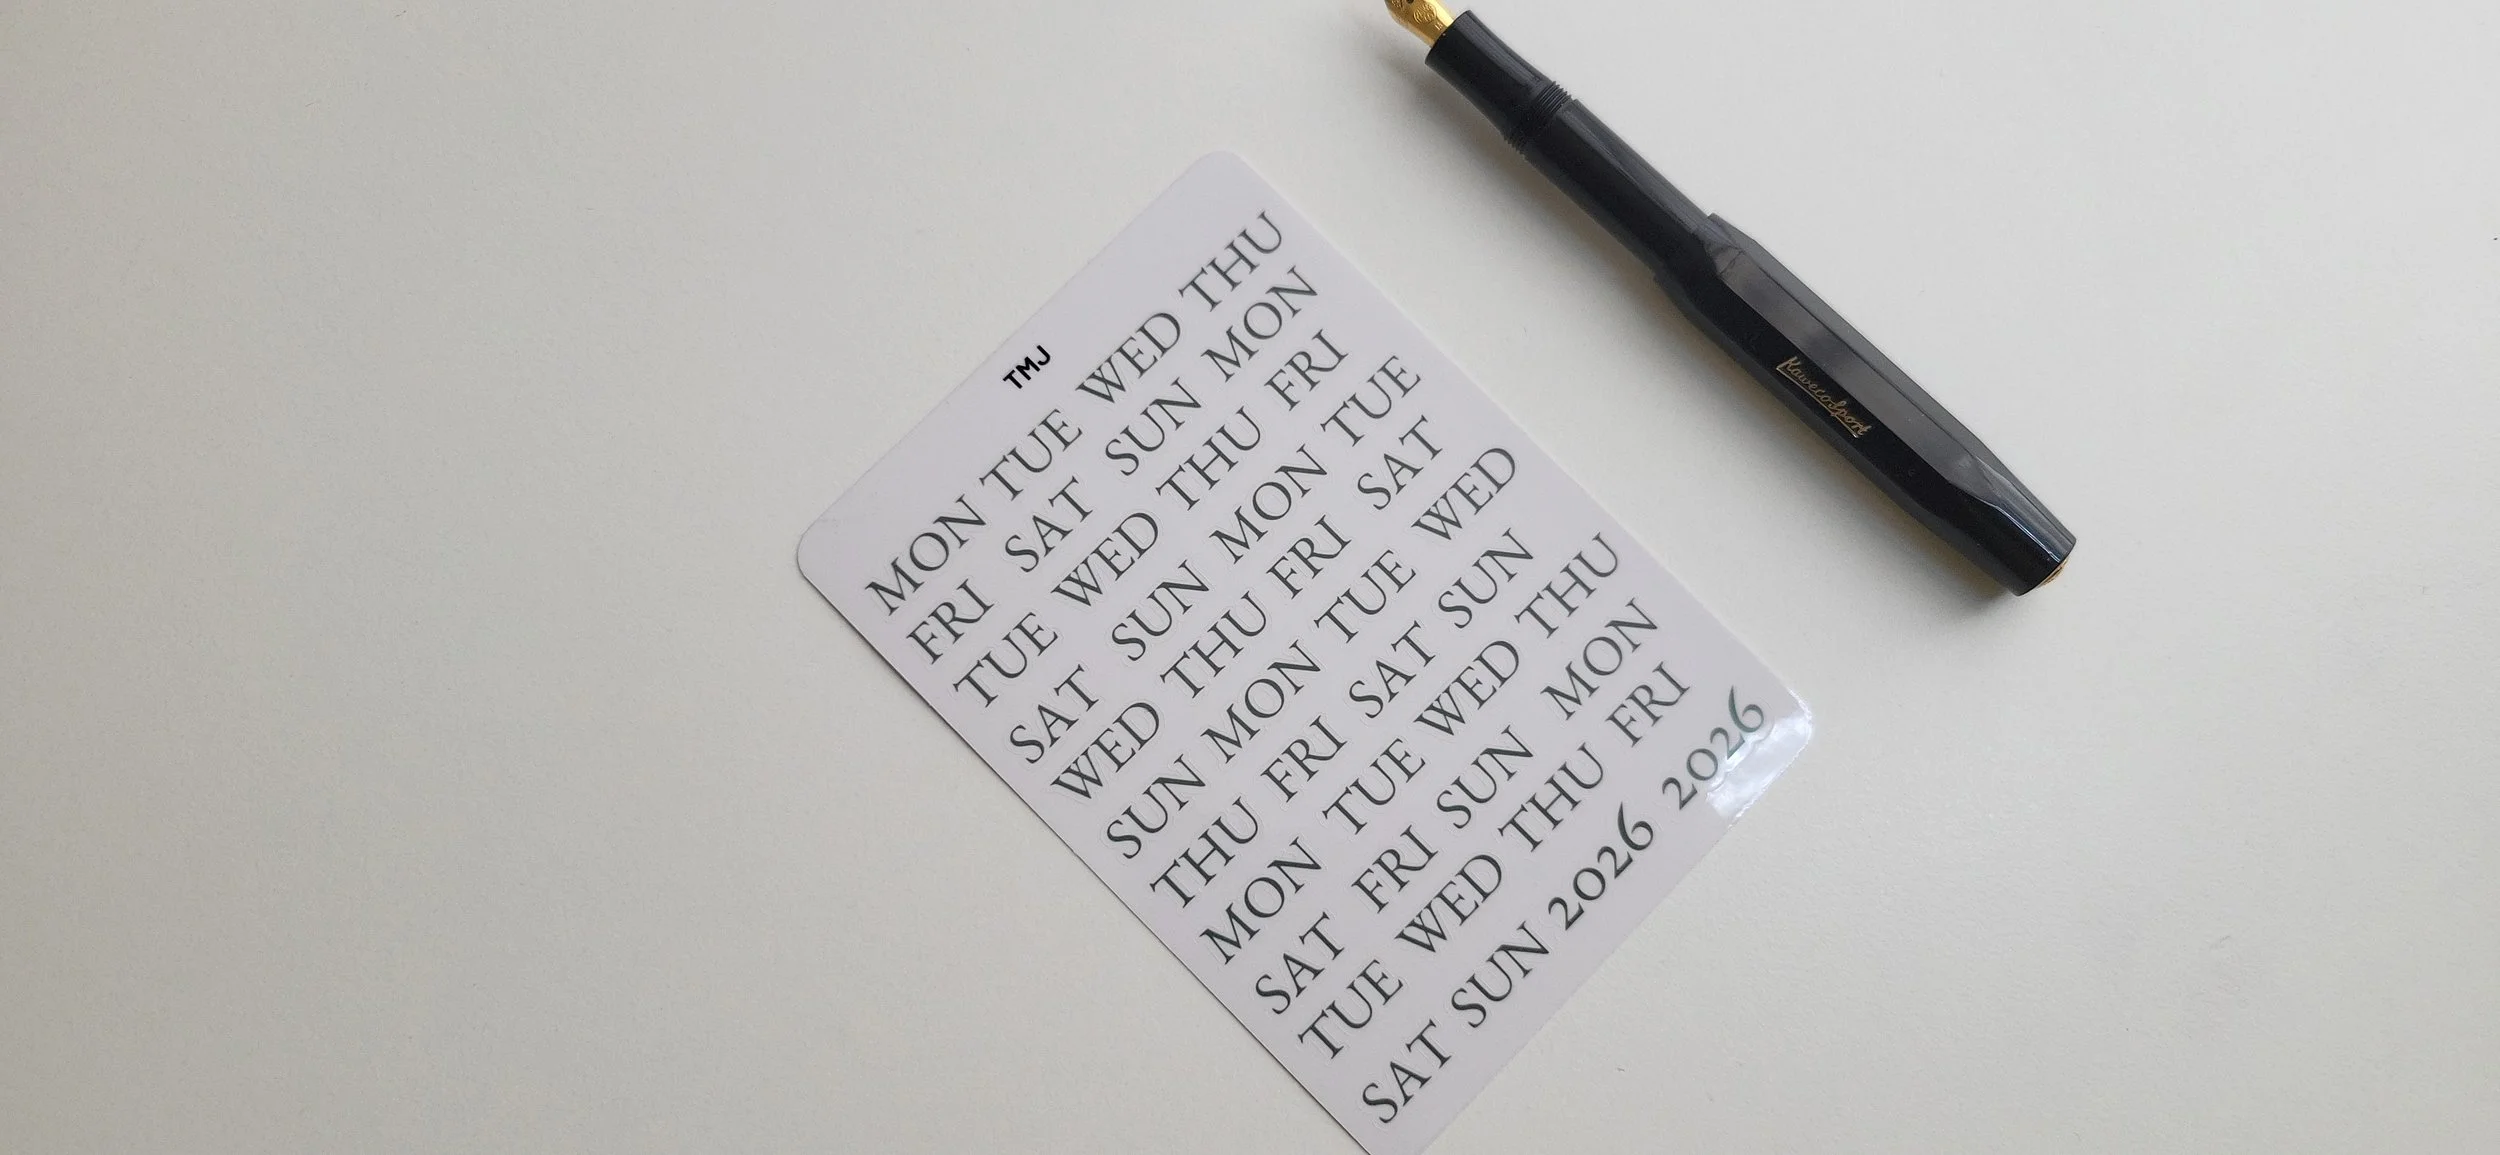 TMJ
MON TUE WED THU
FRI SAT SUN MON
TUE WED THU FRI
SAT SUN MON TUE
WED THU FRI SAT
SUN MON TUE WED
THU FRI SAT SUN
MON TUE WED THU
SAT FRI SUN MON
TUE WED THU FRI
SAT SUN 2026 2026
Kaweco Sport